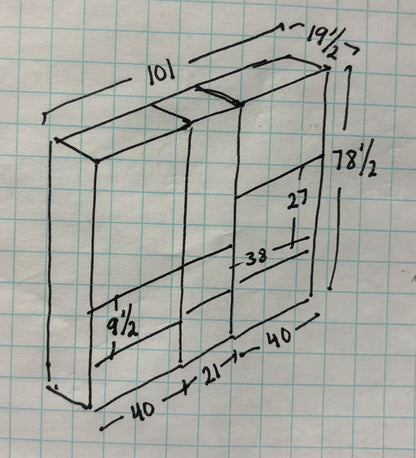 19½
101
78½
27
38
9½
40
21
40